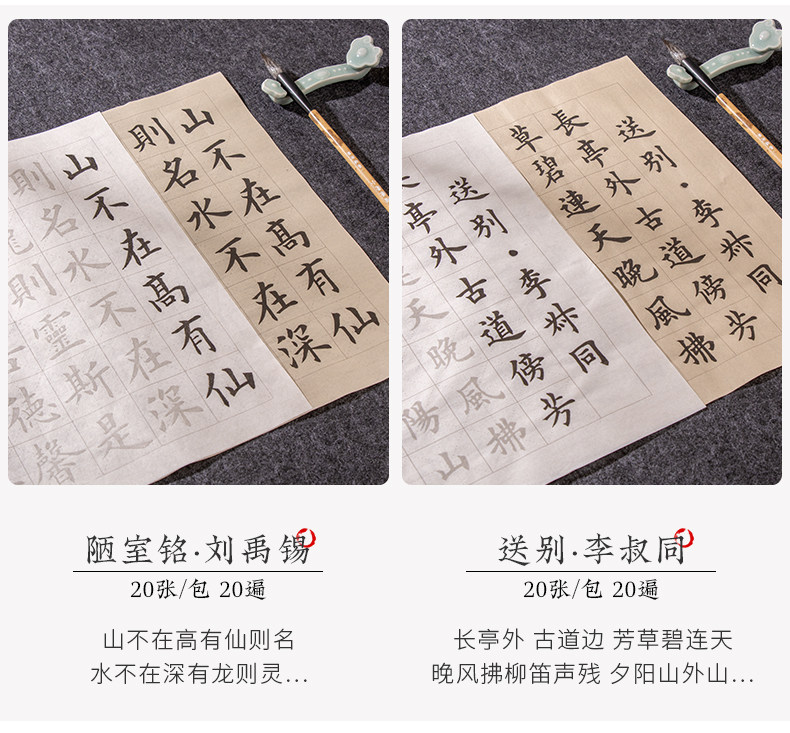 山不在高有仙
則名水不在深
山不在高有仙
則名水不在深
則靈斯是
德馨
送别·李叔同
長亭外古道傍芳
草碧連天晚風拂
送别·李叔同
亭外古道傍芳
天晚風拂
陽山
陋室铭·刘禹锡
20张/包 20遍
山不在高有仙则名
水不在深有龙则灵...
送别·李叔同
20张/包 20遍
长亭外 古道边 芳草碧连天
晚风拂柳笛声残 夕阳山外山...